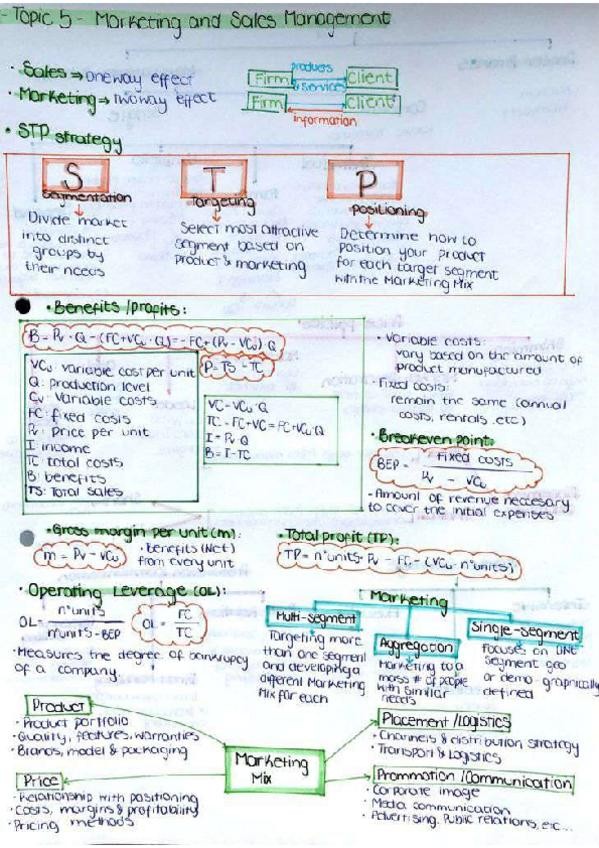 - Topic 5 - Marketing and Sales Management
• Sales ⇒ one way effect
Firm products & services Client
• Marketing → two way effect
Firm Client
information
• STP strategy
S T P
segmentation targeting positioning
Divide market
into distinct
groups by
their needs
Select most attractive
segment based on
product & marketing
Determine how to
position your product
for each target segment
with the Marketing Mix
• Benefits / profits:
B = Pv · Q - (FC + VCu · Q) = - FC + (Pv - VCu) · Q
P = TS - TC
VCu: variable cost per unit
Q: production level
Cv: Variable costs
FC: fixed costs
Pv: Price per unit
I: income
TC: total costs
B: benefits
TS: Total sales
VC = VCu · Q
TC = FC + VC = FC + VCu · Q
I = Pv · Q
B = I - TC
• Variable costs:
vary based on the amount of
product manufactured
• Fixed costs:
remain the same (annual
costs, rentals, etc)
• Breakeven point:
BEP = Fixed costs
Pv - VCu
- Amount of revenue neccesary
to cover the initial expenses
• Gross margin per unit (m):
m = Pv - VCu
• benefits (Net)
from every unit
• Total profit (TP):
TP = nº units · Pv - FC - (VCu · nº units)
• Operating Leverage (OL):
OL = nº units
nº units - BEP
OL = FC
TC
• Measures the degree of bankrupcy
of a company.
Marketing
Multi-segment
Targeting more
than one segment
and developing a
different Marketing
Mix for each
Aggregation
Marketing to a
mass # of people
with similar
needs
Single-segment
Focuses on ONE
segment geo
or demo-graphically
defined
Product
• Product portfolio
• Quality, features, warranties
• Brands, model & packaging
Price
• Relationship with positioning
• Costs, margins & profitability
• Pricing methods
Marketing
Mix
Placement / Logistics
• Channels & distribution strategy
• Transport & Logistics
Prommotion / Communication
• Corporate image
• Media communication
• Advertising, Public relations, etc...